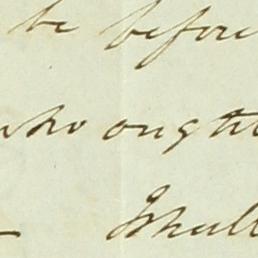 be before
who ought
I shall